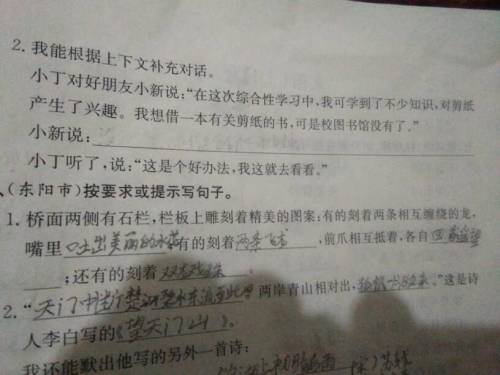 2. 我能根据上下文补充对话。
小丁对好朋友小新说:“在这次综合性学习中,我可学到了不少知识,对剪纸
产生了兴趣。我想借一本有关剪纸的书,可是校图书馆没有了。”
小新说:
小丁听了,说:“这是个好办法,我这就去看看。”
、(东阳市)按要求或提示写句子。
1. 桥面两侧有石栏,栏板上雕刻着精美的图案:有的刻着两条相互缠绕的龙,
嘴里吐出美丽的水花有的刻着两条飞龙,前爪相互抵着,各自回首遥望
;还有的刻着双龙戏珠。
2. “天门中断楚江开碧水东流至此回 两岸青山相对出,孤帆一片日边来。”这是诗
人李白写的《望天门山》。
我还能默出他写的另外一首诗: